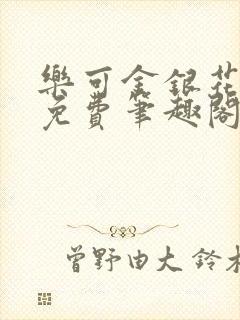 樂可金銀花
免費筆趣閣
曾野由大 鈴木